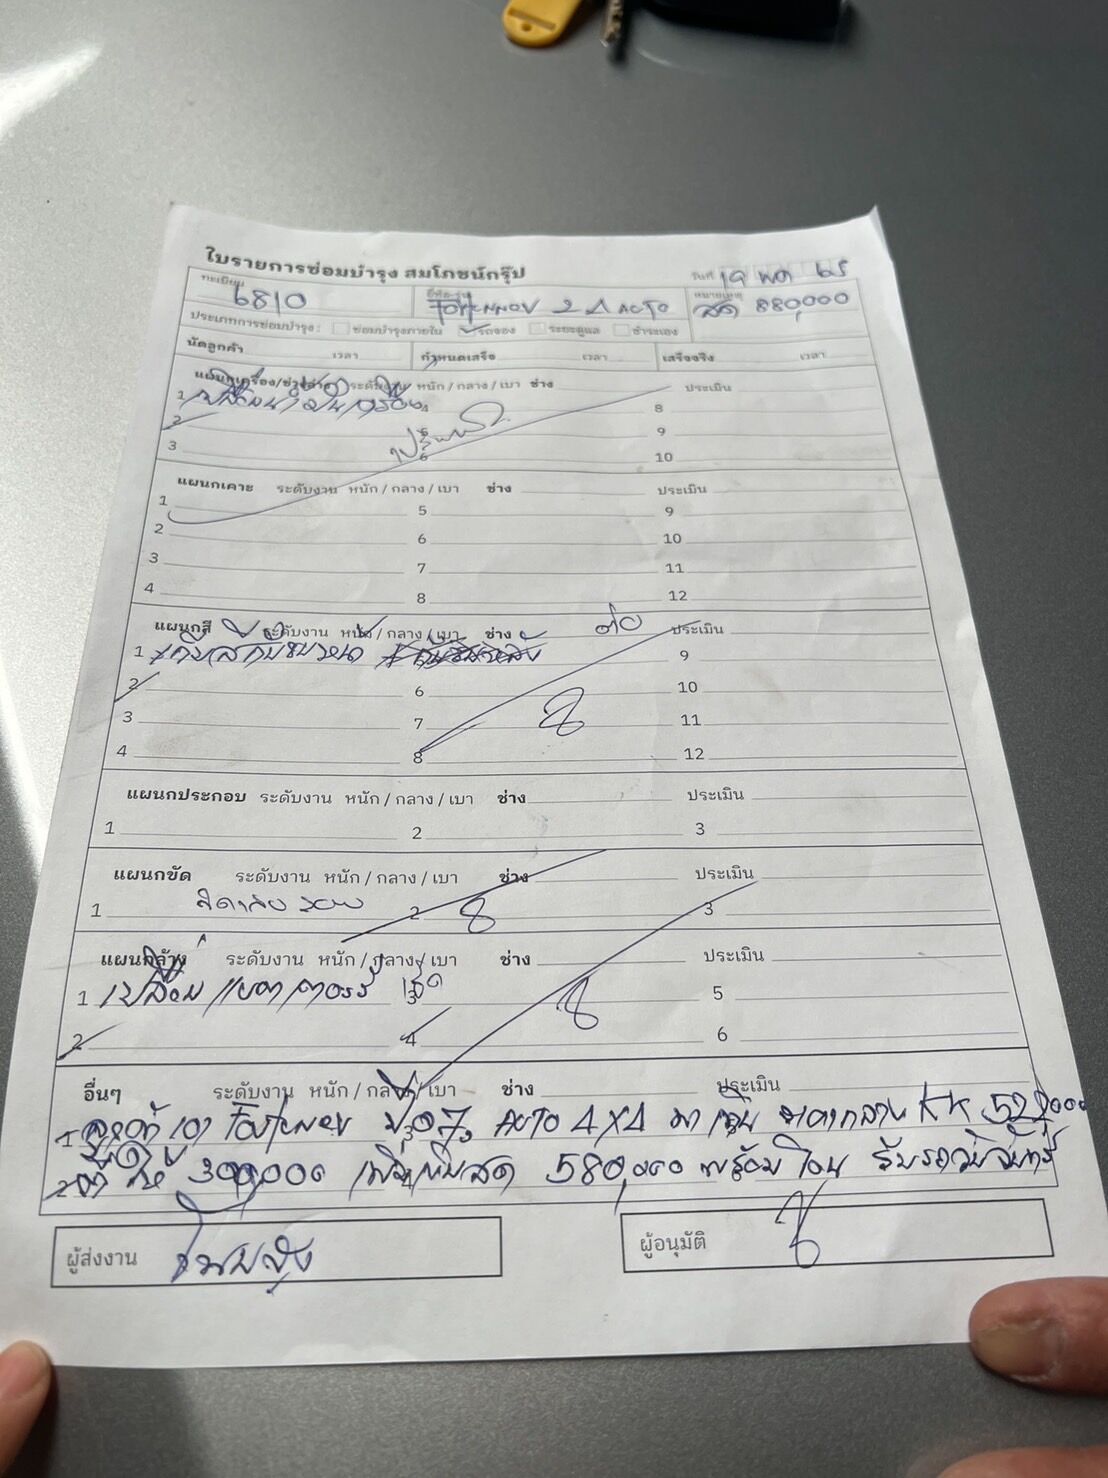 ใบรายการซ่อมบำรุง สมโภชนักรุ๊ป วันที่ 19 พค 65
ทะเบียน 6810 ยี่ห้อ-รุ่น 2.4 AUTO หมายเหตุ สด 880,000
ประเภทการซ่อมบำรุง : ซ่อมบำรุงภายใน รถจอง ระยะดูแล ชำระเอง
นัดลูกค้า เวลา กำหนดเสร็จ เวลา เสร็จจริง เวลา
แผนกเครื่อง/ช่วงล่าง ระดับงาน หนัก / กลาง / เบา ช่าง ประเมิน
1 เปลี่ยนน้ำมันเครื่อง 4 8
2 5 9
3 6 10
แผนกเคาะ ระดับงาน หนัก / กลาง / เบา ช่าง ประเมิน
1 5 9
2 6 10
3 7 11
4 8 12
แผนกสี ระดับงาน หนัก / กลาง / เบา ช่าง ประเมิน
1 9
2 6 10
3 7 11
4 8 12
แผนกประกอบ ระดับงาน หนัก / กลาง / เบา ช่าง ประเมิน
1 2 3
แผนกขัด ระดับงาน หนัก / กลาง / เบา ช่าง ประเมิน
1 2 3
แผนกล้าง ระดับงาน หนัก / กลาง / เบา ช่าง ประเมิน
1 เปลี่ยนแบตเตอรรี่ 3 5
2 4 6
อื่นๆ ระดับงาน หนัก / กลาง / เบา ช่าง ประเมิน
1 ลูกค้าเอา ปี 07 AUTO 4X4 มา KK
2 ให้ 300,000 เพิ่มเงินสด 580,000 พร้อมโอน รับรถวันจันทร์
ผู้ส่งงาน ผู้อนุมัติ